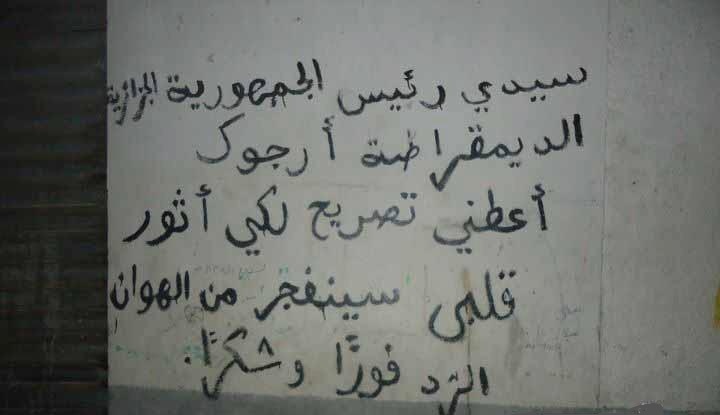 سيدي رئيس الجمهورية الجزائرية
الديمقراطية أرجوك
أعطني تصريح لكي أثور
قلبي سينفجر من الهوان
الرد فورًا وشكرًا.